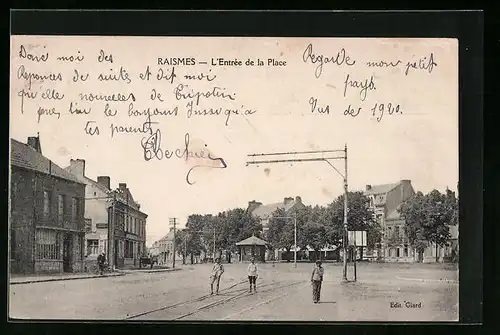 RAISMES — L'Entrée de la Place
Donc moi des
Reponces de suite et dit moi
qu'elle nouvelles de
le Jusqu'a
tes parents
Regarde mon petit
pays.
Vus de 1920.
Edit. Giard